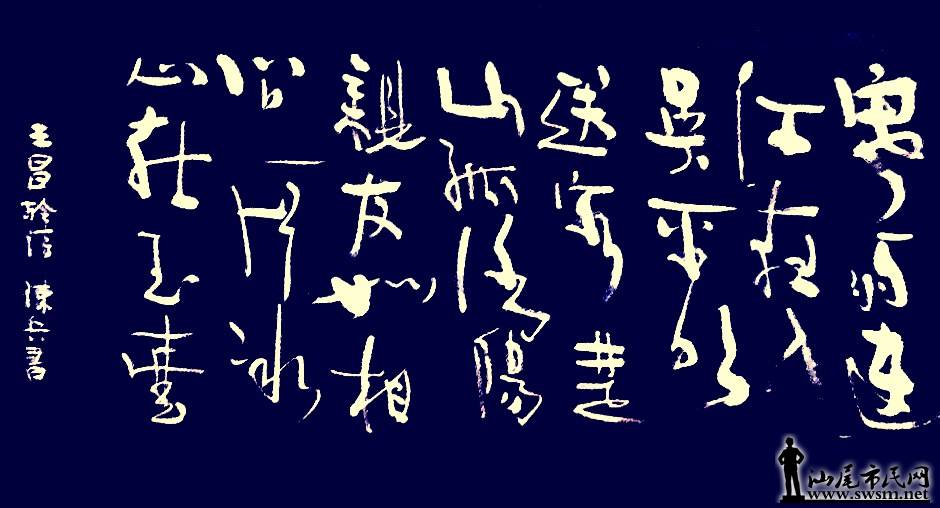 寒雨連
江夜入
吴平明
送客楚
山孤洛陽
親友如相
问一片冰
心在玉壶
王昌龄诗 陳兵書
汕尾市民网
www.swsm.net